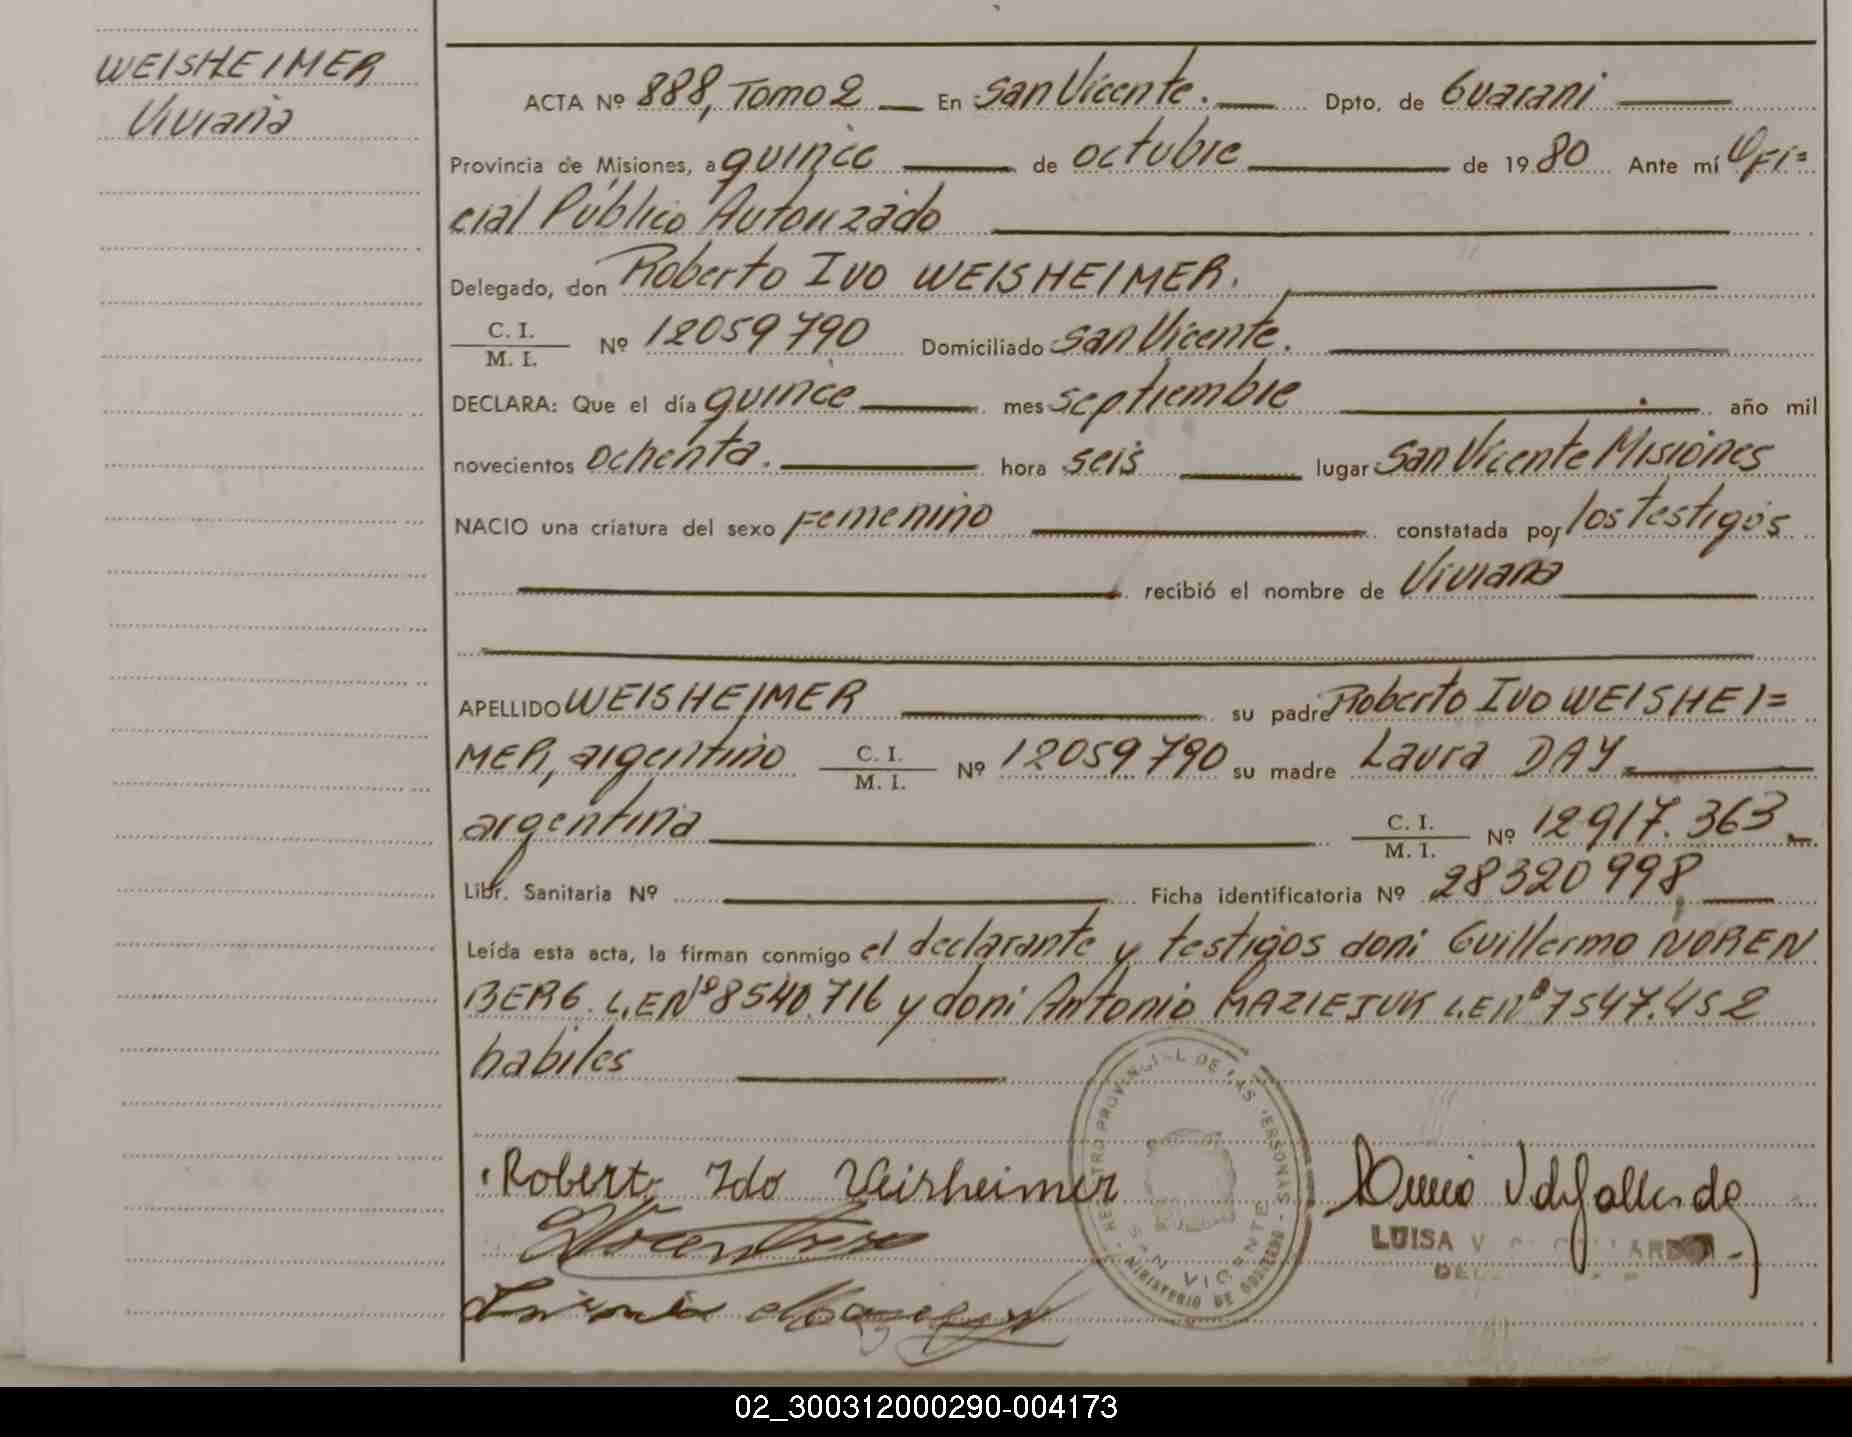 WEISHEIMER
Viviana
ACTA Nº 888, Tomo 2 — En San Vicente. — Dpto. de Guarani —
Provincia de Misiones, a quince — de octubre — de 1980 Ante mí Ofi=
cial Público Autorizado —
Delegado, don Roberto Ivo WEISHEIMER. —
C. I.
M. I. Nº 12059790 Domiciliado San Vicente. —
DECLARA: Que el día quince — mes septiembre — año mil
novecientos ochenta. — hora seis — lugar San Vicente Misiones
NACIO una criatura del sexo Femenino — constatada por los testigos
— recibió el nombre de Viviana —
APELLIDO WEISHEIMER — su padre Roberto Ivo WEISHEI=
MER, argentino C. I. M. I. Nº 12059790 su madre Laura DAY —
argentina — C. I. M. I. Nº 12917.363 —
Libr. Sanitaria Nº — Ficha identificatoria Nº 28320998, —
Leída esta acta, la firman conmigo el declarante y testigos doni Guillermo NOREN
BERG. L.E Nº 8540.716 y doni Antonio MAZIEJUK L.E Nº 7547.452
habiles —
REGISTRO PROVINCIAL DE LAS PERSONAS
SAN VICENTE
MINISTERIO DE GOBIERNO
Roberto Ido Veisheimer
LUISA V
02_300312000290-004173